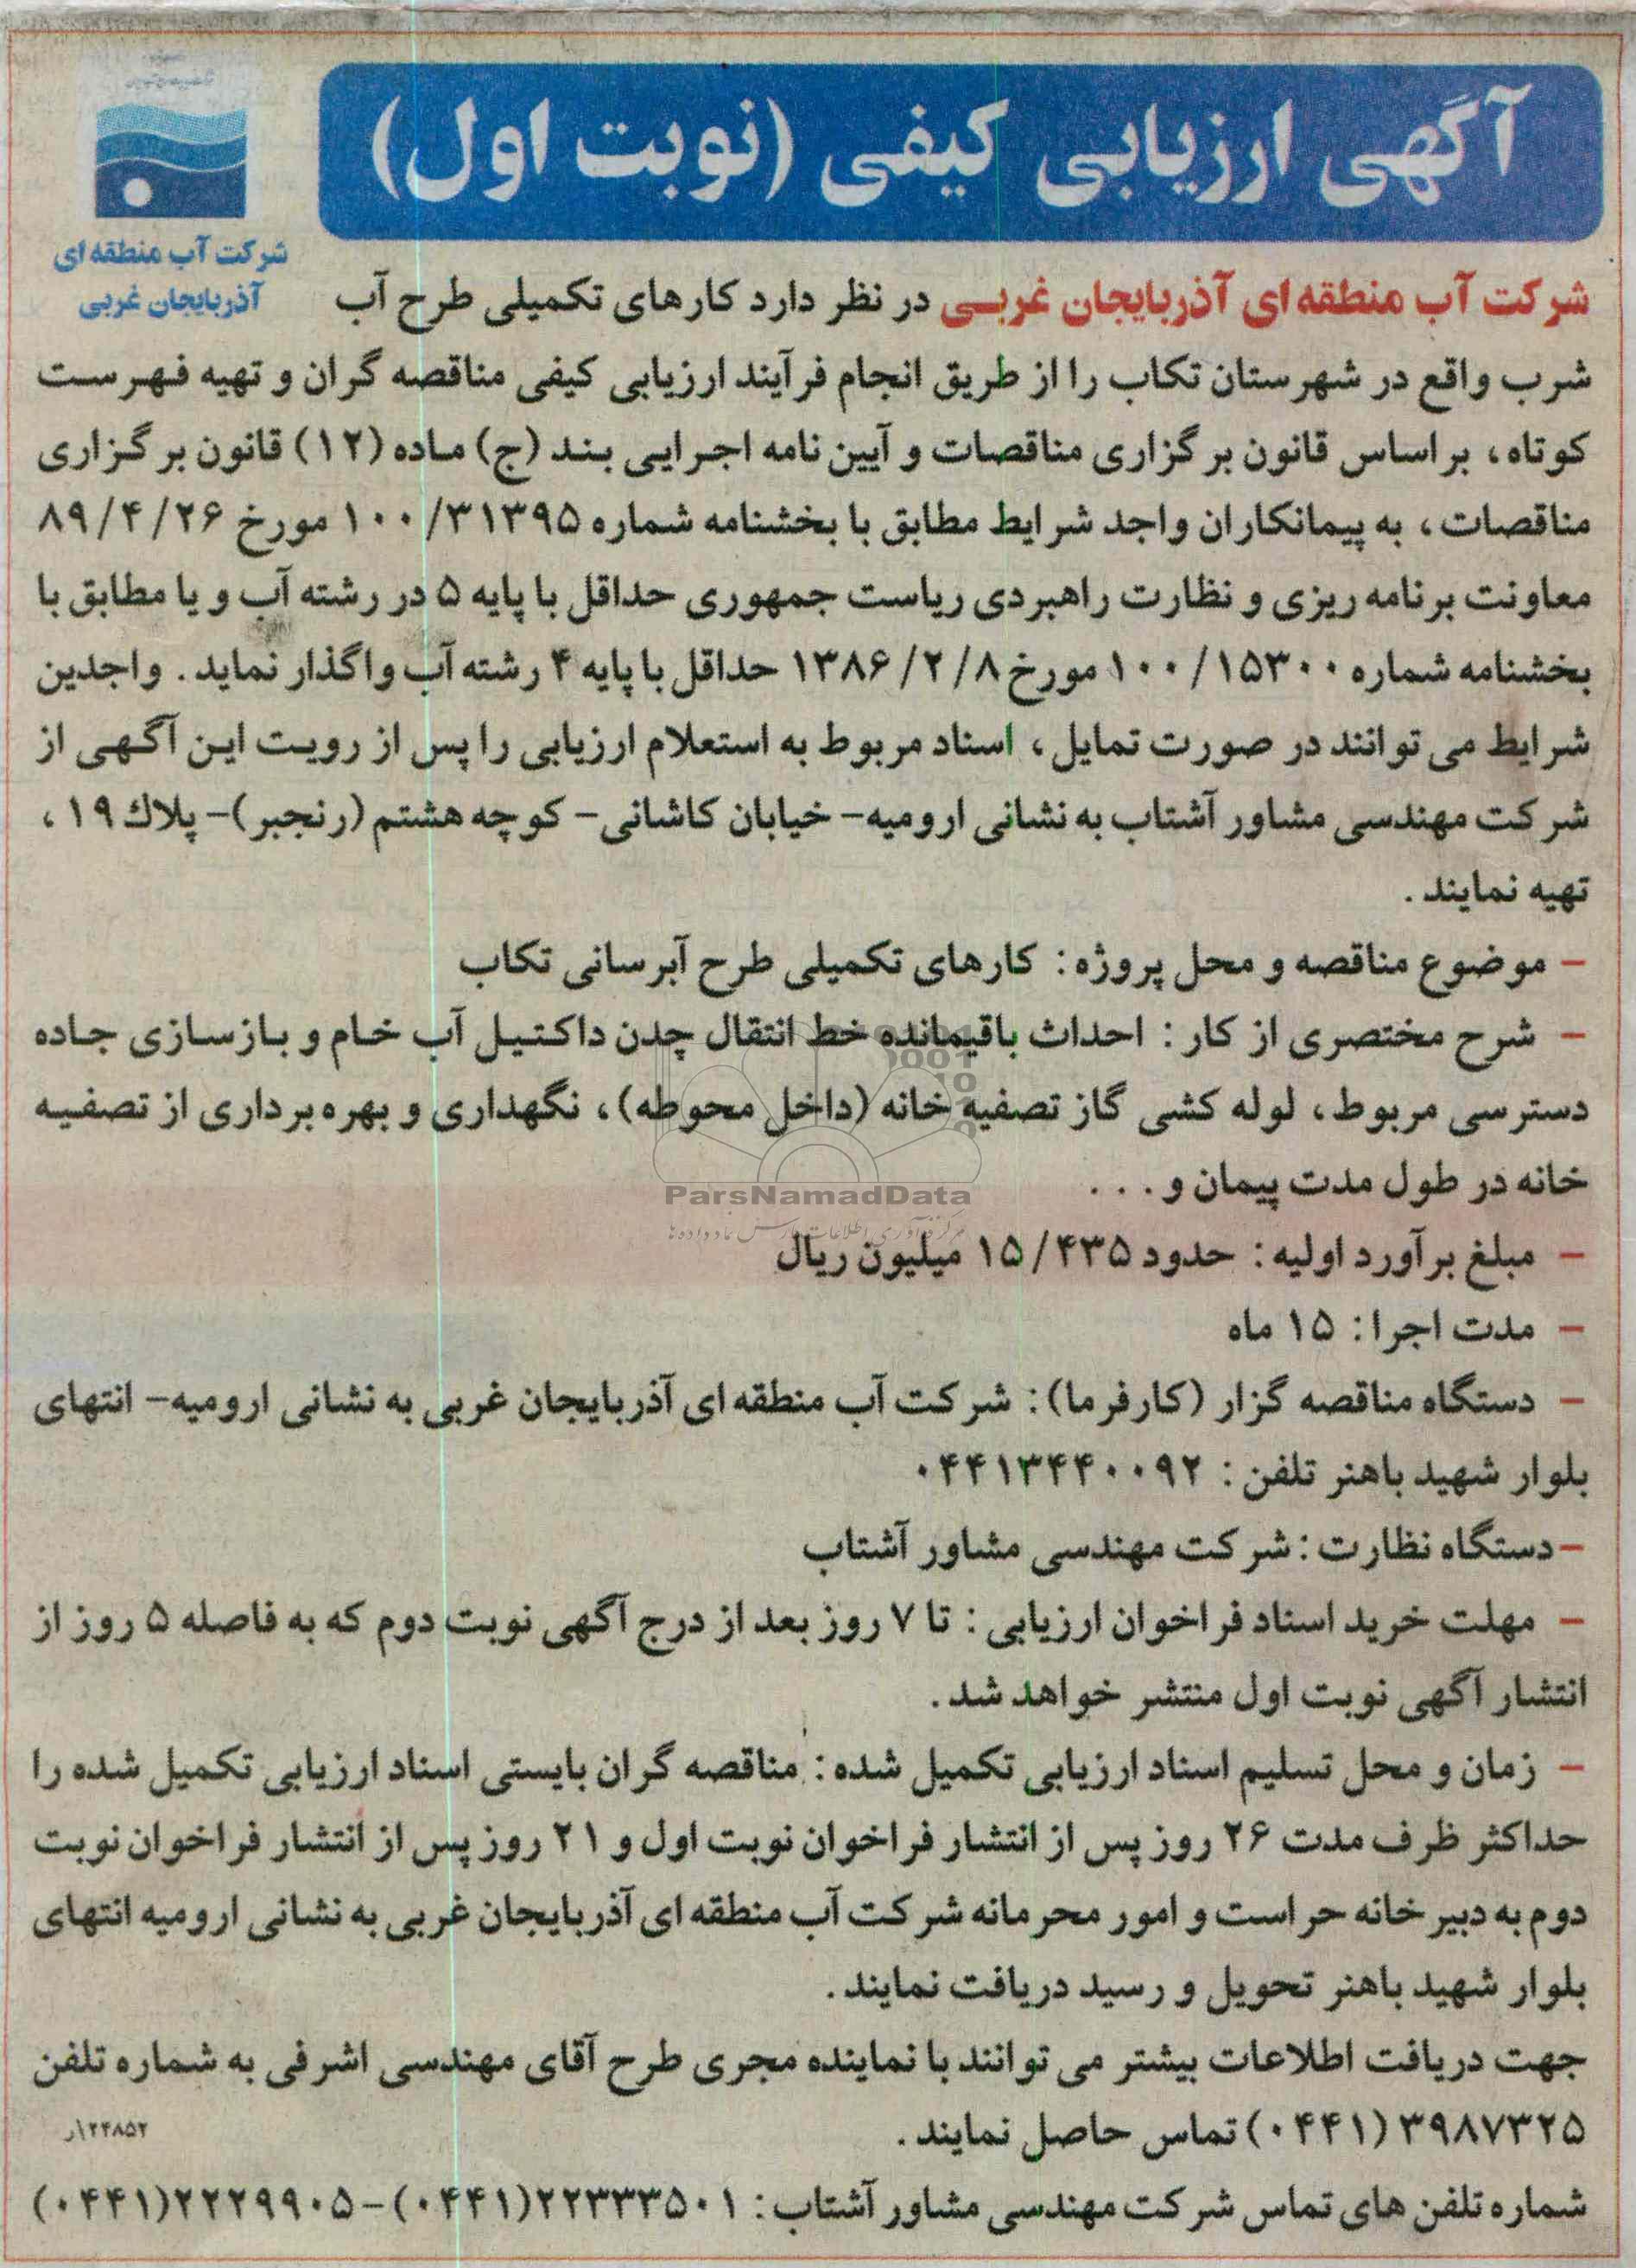 آگهی ارزیابی کیفی (نوبت اول)
شرکت آب منطقه ای
آذربایجان غربی
شرکت آب منطقه ای آذربایجان غربی در نظر دارد کارهای تکمیلی طرح آب
شرب واقع در شهرستان تکاب را از طریق انجام فرآیند ارزیابی کیفی مناقصه گران و تهیه فهرست
کوتاه، براساس قانون برگزاری مناقصات و آیین نامه اجرایی بند (ج) ماده (۱۲) قانون برگزاری
مناقصات، به پیمانکاران واجد شرایط مطابق با بخشنامه شماره ۱۰۰/۳۱۳۹۵ مورخ ۸۹/۴/۲۶
معاونت برنامه ریزی و نظارت راهبردی ریاست جمهوری حداقل با پایه ۵ در رشته آب و یا مطابق با
بخشنامه شماره ۱۰۰/۱۵۳۰۰ مورخ ۱۳۸۶/۲/۸ حداقل با پایه ۴ رشته آب واگذار نماید. واجدین
شرایط می توانند در صورت تمایل، اسناد مربوط به استعلام ارزیابی را پس از رویت این آگهی از
شرکت مهندسی مشاور آشتاب به نشانی ارومیه- خیابان کاشانی- کوچه هشتم (رنجبر)- پلاک ۱۹،
تهیه نمایند.
- موضوع مناقصه و محل پروژه: کارهای تکمیلی طرح آبرسانی تکاب
- شرح مختصری از کار: احداث باقیمانده خط انتقال چدن داکتیل آب خام و بازسازی جاده
دسترسی مربوط، لوله کشی گاز تصفیه خانه (داخل محوطه)، نگهداری و بهره برداری از تصفیه
خانه در طول مدت پیمان و...
ParsNamadData
- مبلغ برآورد اولیه: حدود ۱۵/۴۳۵ میلیون ریال
- مدت اجرا: ۱۵ ماه
- دستگاه مناقصه گزار (کارفرما): شرکت آب منطقه ای آذربایجان غربی به نشانی ارومیه- انتهای
بلوار شهید باهنر تلفن: ۰۴۴۱۳۴۴۰۰۹۲
-دستگاه نظارت: شرکت مهندسی مشاور آشتاب
- مهلت خرید اسناد فراخوان ارزیابی: تا ۷ روز بعد از درج آگهی نوبت دوم که به فاصله ۵ روز از
انتشار آگهی نوبت اول منتشر خواهد شد.
- زمان و محل تسلیم اسناد ارزیابی تکمیل شده: مناقصه گران بایستی اسناد ارزیابی تکمیل شده را
حداکثر ظرف مدت ۲۶ روز پس از انتشار فراخوان نوبت اول و ۲۱ روز پس از انتشار فراخوان نوبت
دوم به دبیرخانه حراست و امور محرمانه شرکت آب منطقه ای آذربایجان غربی به نشانی ارومیه انتهای
بلوار شهید باهنر تحویل و رسید دریافت نمایند.
جهت دریافت اطلاعات بیشتر می توانند با نماینده مجری طرح آقای مهندسی اشرفی به شماره تلفن
۳۹۸۷۳۲۵ (۰۴۴۱) تماس حاصل نمایند.
۱۲۴۸۵۲/ر
شماره تلفن های تماس شرکت مهندسی مشاور آشتاب: ۲۲۳۳۳۵۰۱(۰۴۴۱)-۲۲۲۹۹۰۵(۰۴۴۱)